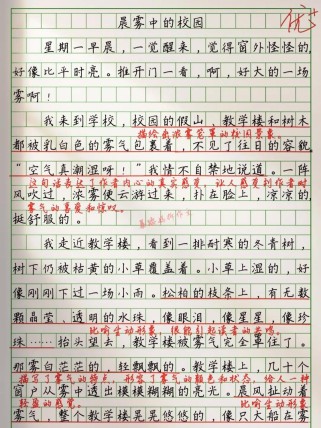 晨雾中的校园
优+
星期一早晨,一觉醒来,觉得窗外怪怪的,
好像比平时亮。推开门一看,啊,好大的一场
雾啊!
我来到学校,校园的假山、教学楼和树木
描绘出浓雾笼罩的校园景象。
都被乳白色的雾气包裹着,不见了往日的容貌。
“空气真潮湿呀!”我情不自禁地说道。一阵
这句话表达了作者内心的真实感受,让人感受到作者对
风吹过,浓雾便云游过来,扑在脸上,凉凉的
雾气的喜爱和惊叹。
挺舒服的。
我走近教学楼,看到一排耐寒的冬青树,
树下仍被枯黄的小草覆盖着。小草上湿的,好
像刚刚下过一场小雨。松柏的枝条上,有无数
颗晶莹 透明的水珠,像眼泪,像星星,像珍
比喻生动形象,很能引起读者的共鸣。
珠……抬头望去,教学楼被雾气完全罩住了。
那雾白茫茫的,轻飘飘的。教学楼上,几十个
描写了雾气的特点,形容了雾气的颜色和状态,给人一种
窗户从雾中透出模模糊糊的亮光。晨风扯动着
轻盈的感觉。
比喻生动形象,
雾气,整个教学楼晃晃悠悠的,像只大船在雾